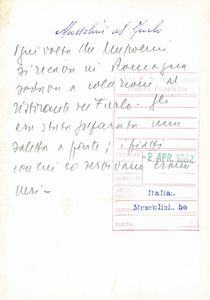 Mussolini al Furlo
Ogni volta che Mussolini
si recava in Romagna
sostava a colazione al
ristorante del Furlo. Gli
era stata preparata una
saletta a parte; i piatti
con cui lo servivano erano
neri -
2 APR. 1982
Italia.
Mussolini. be